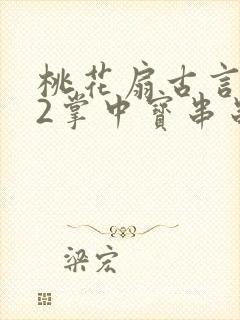 桃花扇古言
2掌中寶串
梁宏